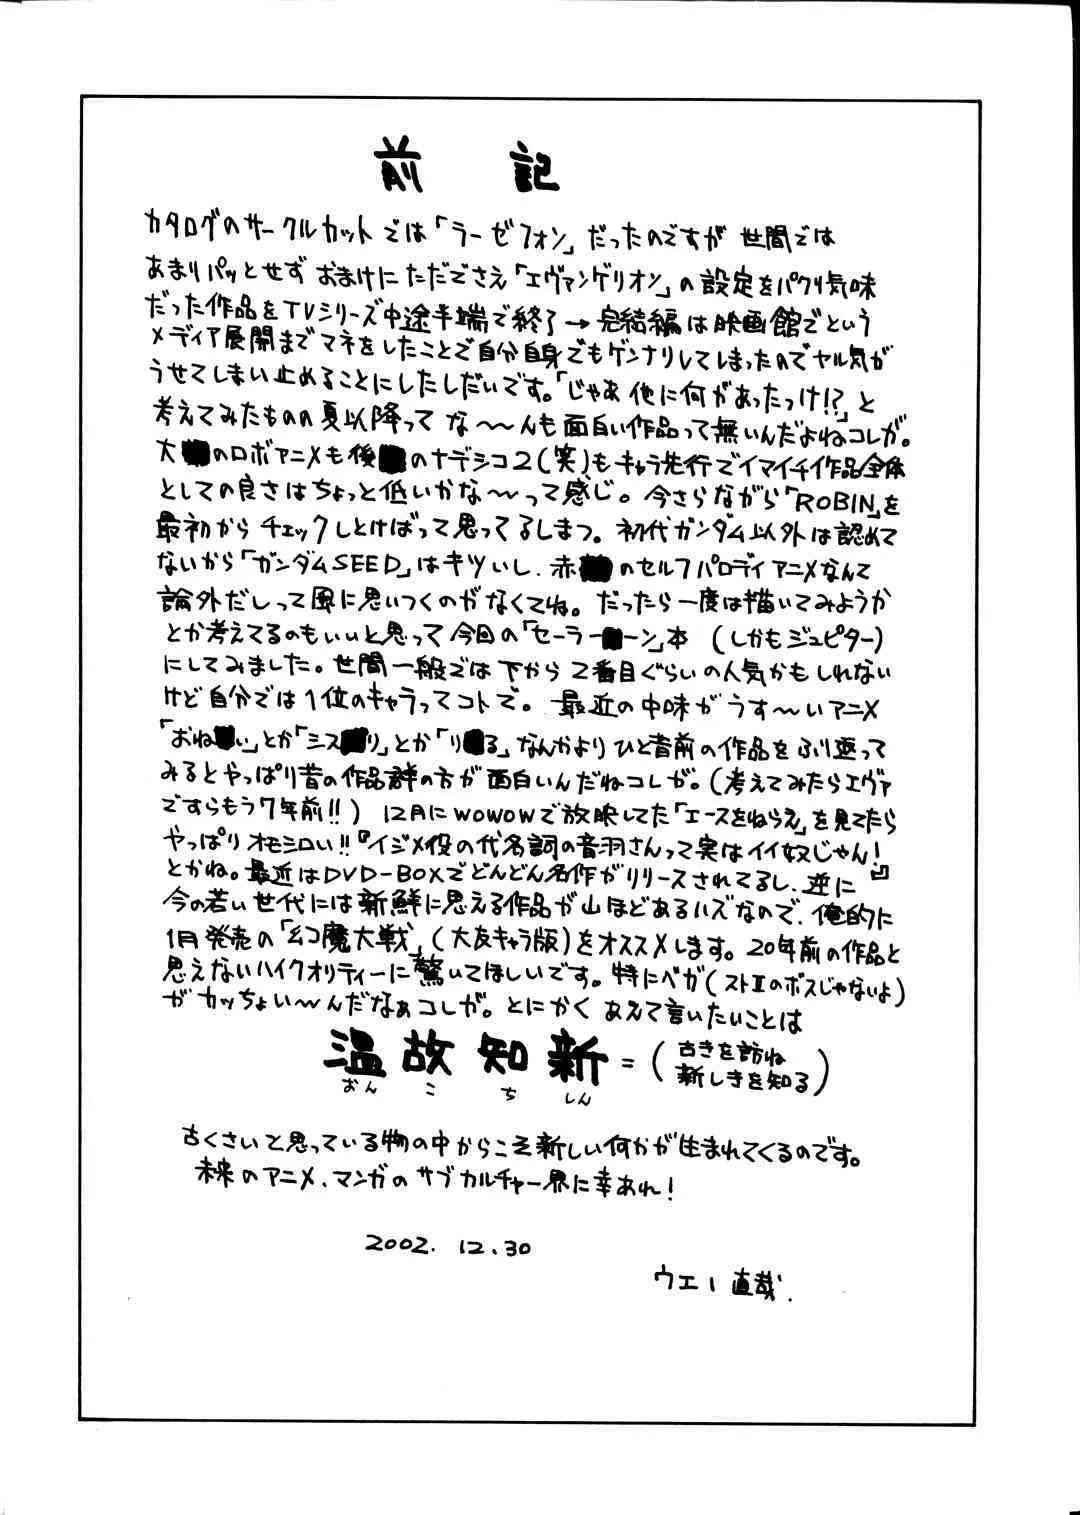 前記
カタログのサークルカットでは「ラーゼフォン」だったのですが世間では
あまりパッとせずおまけにただでさえ「エヴァンゲリオン」の設定をパクリ気味
だった作品をTVシリーズ中途半端で終了→完結編は映画館でという
メディア展開までマネをしたことで自分自身でもゲンナリしてしまったのでヤル気が
うせてしまい止めることにしたしだいです。「じゃあ他に何があったっけ!?」と
考えてみたものの夏以降ってな〜〜んも面白い作品って無いんだよねコレが。
大■のロボアニメも後■のナデシコ2(笑)もキャラ先行でイマイチ作品全体
としての良さはちょっと低いかな〜〜って感じ。今さらながら「ROBIN」を
最初からチェックしとけばって思ってるしまつ。初代ガンダム以外は認めて
ないから「ガンダムSEED」はキツいし、赤■のセルフパロディアニメなんて
論外だしって風に思いつくのがなくてね。だったら一度は描いてみようか
とか考えてるのもいいと思って今回の「セーラー■ーン」本(しかもジュピター)
にしてみました。世間一般では下から2番目ぐらいの人気かもしれない
けど自分では1位のキャラってコトで。最近の中味がうす〜いアニメ
「おね■い」とか「シス■リ」とか「リ■る」なんかよりひと昔前の作品をふり返って
みるとやっぱり昔の作品群の方が面白いんだねコレが。(考えてみたらエヴァ
ですらもう7年前!!)12月にWOWOWで放映してた「エースをねらえ」を見てたら
やっぱりオモシロい!!『イジメ役の代名詞の音羽さんって実はイイ奴じゃん!』
とかね。最近はDVD-BOXでどんどん名作がリリースされてるし、逆に
今の若い世代には新鮮に思える作品が山ほどあるハズなので、俺的に
1月発売の「幻魔大戦」(大友キャラ版)をオススメします。20年前の作品と
思えないハイクオリティーに驚いてほしいです。特にベガ(ストⅡのボスじゃないよ)
がカッちょい〜〜んだなぁコレが。とにかくあえて言いたいことは
温故知新=(古きを訪ね
新しきを知る)
おんこちしん
古くさいと思っている物の中からこそ新しい何かが生まれてくるのです。
未来のアニメ、マンガのサブカルチャー界に幸あれ!
2002.12.30
ウエー直哉.